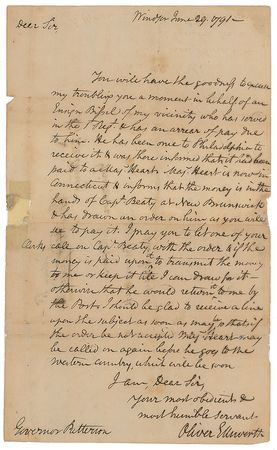 Windsor June 29. 1791 –
Dear Sir,
You will have the goodness to excuse
my troubling you a moment in behalf of an
Ensign Bissel of my vicinity who has served
in the 1 Regt. & has an arrear of pay due
to him. He has been once to Philadelphia to
receive it & was there informed that it had been
paid to a Maj. Heart. Maj. Heart is now in
Connecticut & informs that the money is in the
hands of Capt. Beaty at New Brunswick
& has drawn an order on him as you will
see to pay it. I pray you to let one of your
Clerks call on Capt. Beaty, with the order & if the
money is paid upon it to transmit the money
to me or keep it till I can draw for it –
otherwise that he would return it to me by
the Post. I should be glad to receive a line
upon the subject as soon as may be so that if
the order be not accepted Maj. Heart may
be called on again before he goes to the
western country, which will be soon
I am, Dear Sir,
Your most obedient &
most humble servant
Governor Patterson Oliver Ellsworth